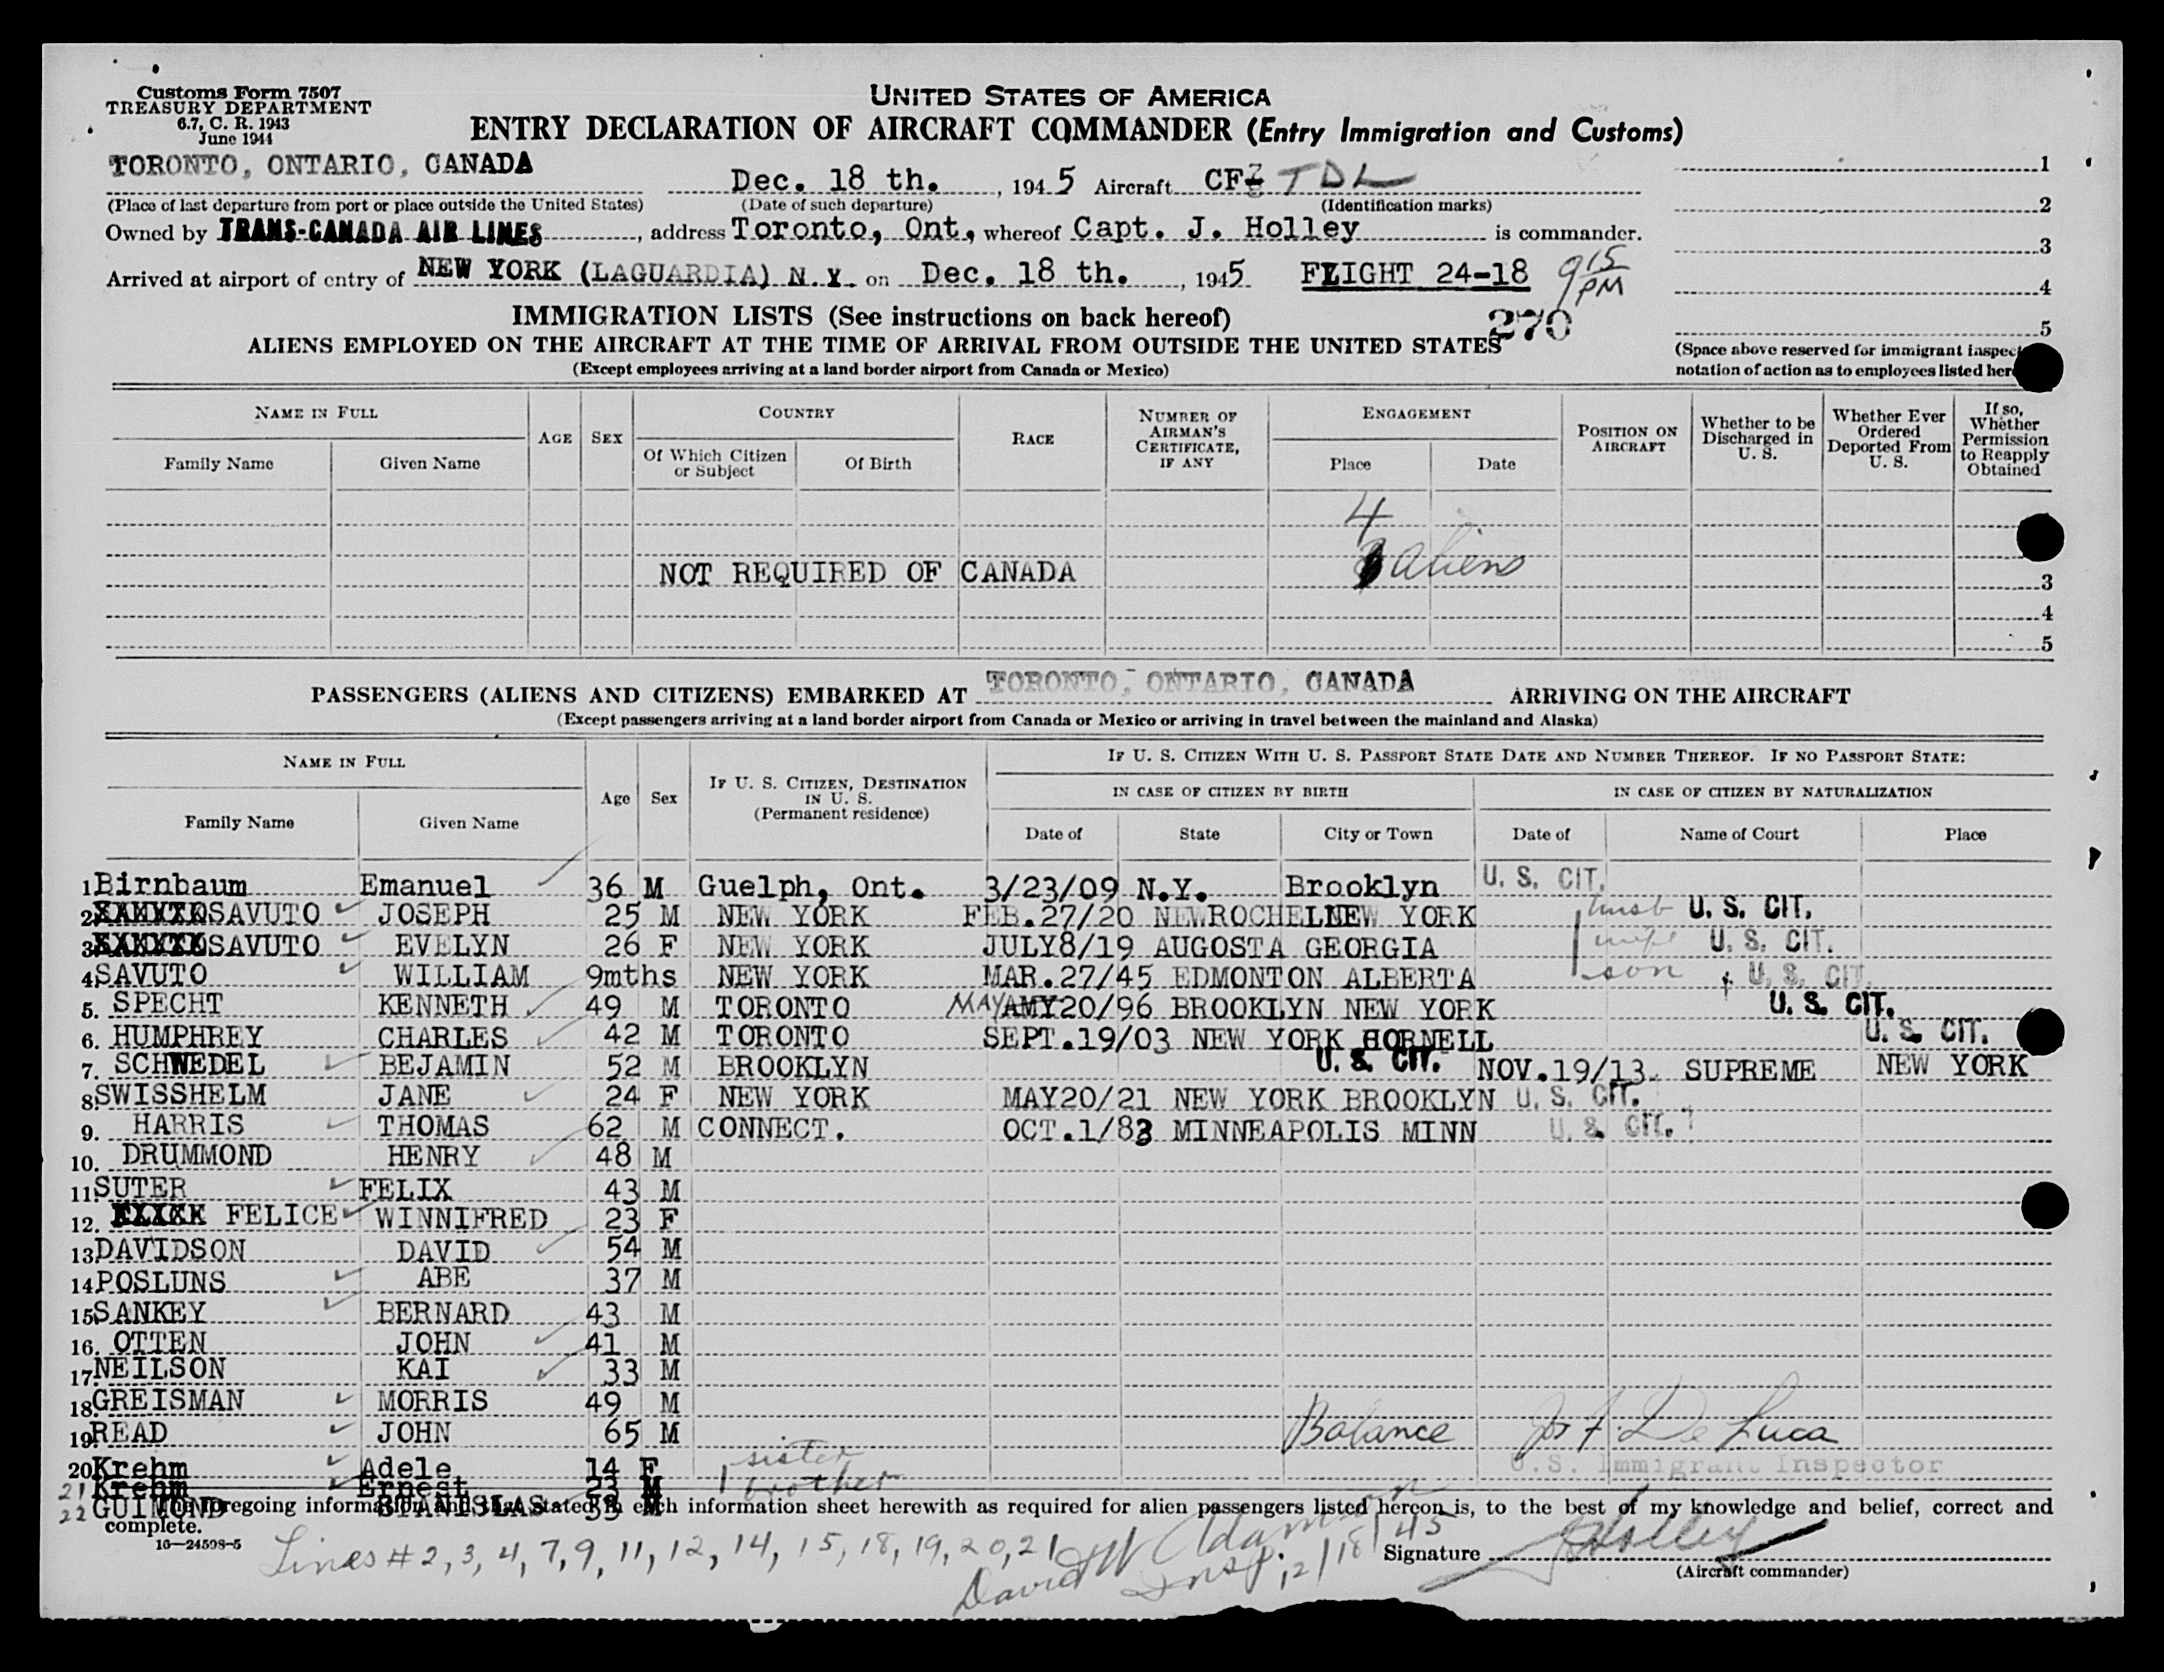 Customs Form 7507
TREASURY DEPARTMENT
6.7, C. R. 1943
June 1944
UNITED STATES OF AMERICA
ENTRY DECLARATION OF AIRCRAFT COMMANDER (Entry Immigration and Customs)
TORONTO, ONTARIO, CANADA Dec. 18 th., 1945 Aircraft CF TDL
(Place of last departure from port or place outside the United States) (Date of such departure) (Identification marks)
Owned by TRANS-CANADA AIR LINES, address Toronto, Ont, whereof Capt. J. Holley is commander.
Arrived at airport of entry of NEW YORK (LAGUARDIA) N.Y. on Dec. 18 th., 1945 FLIGHT 24-18 9 15 PM
1
2
3
4
5
270
IMMIGRATION LISTS (See instructions on back hereof)
ALIENS EMPLOYED ON THE AIRCRAFT AT THE TIME OF ARRIVAL FROM OUTSIDE THE UNITED STATES
(Except employees arriving at a land border airport from Canada or Mexico)
(Space above reserved for immigrant inspec
notation of action as to employees listed her
NAME IN FULL AGE SEX COUNTRY RACE NUMBER OF AIRMAN'S CERTIFICATE, IF ANY ENGAGEMENT POSITION ON AIRCRAFT Whether to be Discharged in U. S. Whether Ever Ordered Deported From U. S. If so, Whether Permission to Reapply Obtained
Family Name Given Name Of Which Citizen or Subject Of Birth Place Date
4
aliens
NOT REQUIRED OF CANADA
3
4
5
PASSENGERS (ALIENS AND CITIZENS) EMBARKED AT TORONTO, ONTARIO, CANADA ARRIVING ON THE AIRCRAFT
(Except passengers arriving at a land border airport from Canada or Mexico or arriving in travel between the mainland and Alaska)
NAME IN FULL Age Sex IF U. S. CITIZEN, DESTINATION IN U. S. (Permanent residence) IF U. S. CITIZEN WITH U. S. PASSPORT STATE DATE AND NUMBER THEREOF. IF NO PASSPORT STATE:
IN CASE OF CITIZEN BY BIRTH IN CASE OF CITIZEN BY NATURALIZATION
Family Name Given Name Date of State City or Town Date of Name of Court Place
1 Birnbaum Emanuel 36 M Guelph, Ont. 3/23/09 N.Y. Brooklyn U. S. CIT.
2 SAVUTO JOSEPH 25 M NEW YORK FEB.27/20 NEWROCHELNEW YORK U. S. CIT.
3 SAVUTO EVELYN 26 F NEW YORK JULY8/19 AUGOSTA GEORGIA wife U. S. CIT.
4 SAVUTO WILLIAM 9mths NEW YORK MAR.27/45 EDMONTON ALBERTA son U. S. CIT.
5. SPECHT KENNETH 49 M TORONTO MAY AMY20/96 BROOKLYN NEW YORK U. S. CIT.
6. HUMPHREY CHARLES 42 M TORONTO SEPT.19/03 NEW YORK HORNELL U. S. CIT.
7. SCHWEDEL BEJAMIN 52 M BROOKLYN U. S. CIT. NOV.19/13. SUPREME NEW YORK
8. SWISSHELM JANE 24 F NEW YORK MAY20/21 NEW YORK BROOKLYN U. S. CIT.
9. HARRIS THOMAS 62 M CONNECT. OCT.1/83 MINNEAPOLIS MINN U. S. CIT.
10. DRUMMOND HENRY 48 M
11. SUTER FELIX 43 M
12. FELICE WINNIFRED 23 F
13. DAVIDSON DAVID 54 M
14. POSLUNS ABE 37 M
15. SANKEY BERNARD 43 M
16. OTTEN JOHN 41 M
17. NEILSON KAI 33 M
18. GREISMAN MORRIS 49 M
19. READ JOHN 65 M Balance Jos F. De Luca
20. Krehm Adele 14 F sister U.S. Immigrant Inspector
21 Krehm Ernest 23 M brother
22 GUIMOND STANISLAS 53 M
The foregoing information and that stated in each information sheet herewith as required for alien passengers listed hereon is, to the best of my knowledge and belief, correct and
complete.
16—24598-5
Lines # 2, 3, 4, 7, 9, 11, 12, 14, 15, 18, 19, 20, 21 David W Adamson
Insp. 12/18/45
Signature J Holley
(Aircraft commander)